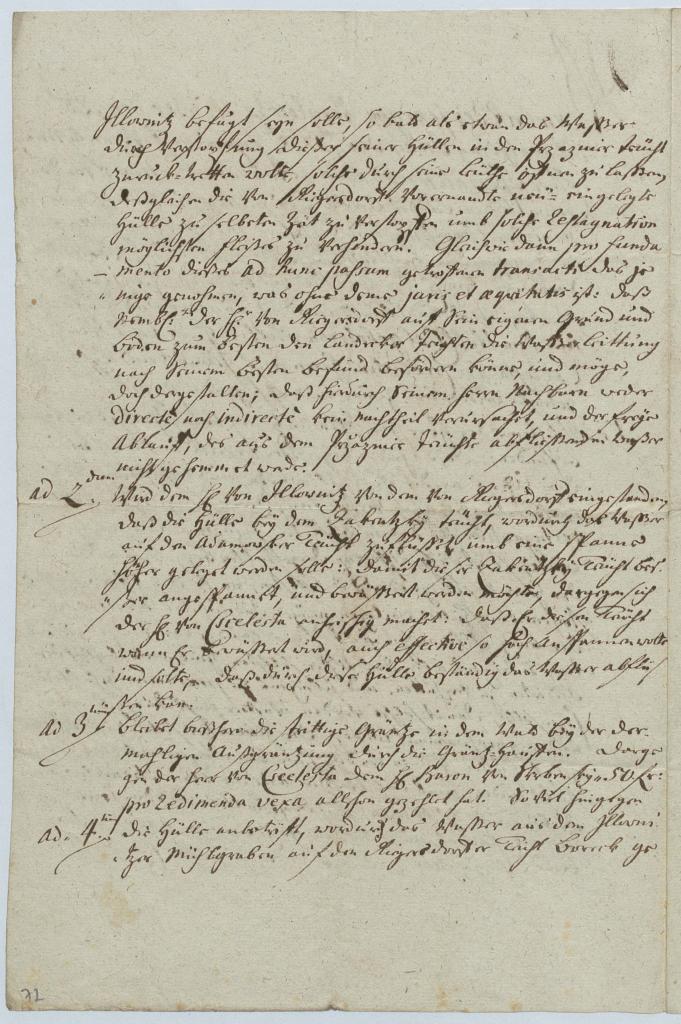 Illownitz befugt seyn solle, so bald als etwan das Wasser
durch Verstopfung dieser seiner Hüllen in den Przazmie teücht
zuruck-tretten wolte, solche durch seine leüthe öffnen zu laßen,
deßgleichen die von Riegersdorf vorernandte neü-eingelegte
Hülle zu selbeten Zeit zu verstopfen umb solche restagnation
möglichsten fleißes zu verhindern. Gleichwie dann pro funda
-mento dieses ad hunc passum getroffenen transacti das je
nige genohmen, was ohne deme juris et æquitatis ist: daß
Nembl: der H: von Riegersdorf auf sein eigenen Grund und
boden zum besten den Landecker Teichten die Wasserleittung
nach seinem besten befund befördern könne, und möge,
doch dergestalten, daß hierdurch seinem herrn Nachbarn weder
directè noch indirectè kein Nachtheil verursachet, und der freye
Ablauff, des aus dem Przazmie teüchte abfließenden waßer
nicht gehemmet werde.
ad 2dum Wird dem H: von Illownitz von dem von Riegersdorf eingestanden,
daß die Hülle bey dem Zabentzky teücht, wordurch das Wasser
auf den Adamowker Teücht zufließet umb eine Spanne
höher geleget werden solle: damit dieser Teücht bes
ser angespannet, und bewässert werden möchte, dargegen sich
der H: von Cecelesta anheischig machet: daß Er diesen Teücht
wann Er bewässert wird, auch effectivè so hoch anspannen wolte
und solte, daß durch diese Hülle beständig das Wasser abflüs
sen kan.
ad 3tium bleibet die strittige Gräntze in dem Wald bey der der
mahligen Außgräntzung durch die Gräntz-Hauffen. Darge
gen der Herr von Cecelesta dem H: Baron von 50 fl:
pro redimenda vexa allschon gezehlet hat. Soviel hingegen
ad 4tum die Hülle anbetrifft, wordurch das Wasser aus dem Illowni
tzer Mühlgraben auf den Riegersdorffer Teücht Boreck ge
72